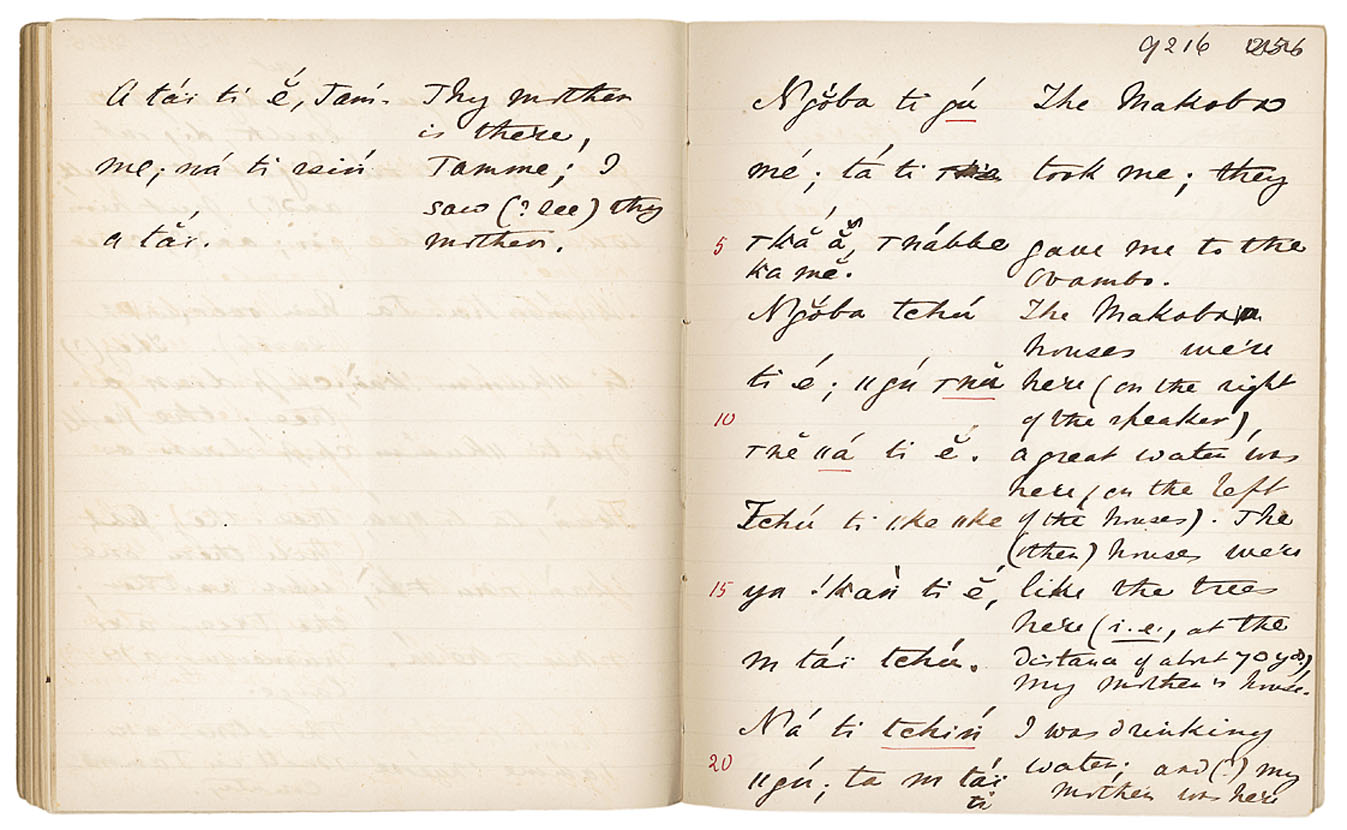 A tái ti ĕ́, Tam-
Thy mother
is there,
me; ná ti
Tamme; I
saw (? see) thy
a tăi.
mother.
9216
Ngŏba ti gú
The Makoba
mé; tá ti
took me; they
5
gave me to the
ka mĕ.
Ovambo.
Ngŏba tchú
The Makoba
houses were
ti é; "gú
here (on the right
10
of the speaker),
"á ti ĕ.
a great water was
here (on the left
Tchú ti "ke "ke
of the houses). The
(other) houses were
15
ya !kàn ti ĕ́,
like the trees
here (i.e., at the
m tái tchú.
distance of about 70 yds),
my mother's house.
Ná ti tchiń
I was drinking
20
"gú; ta m tái
water; and (?) my
ti
mother was here